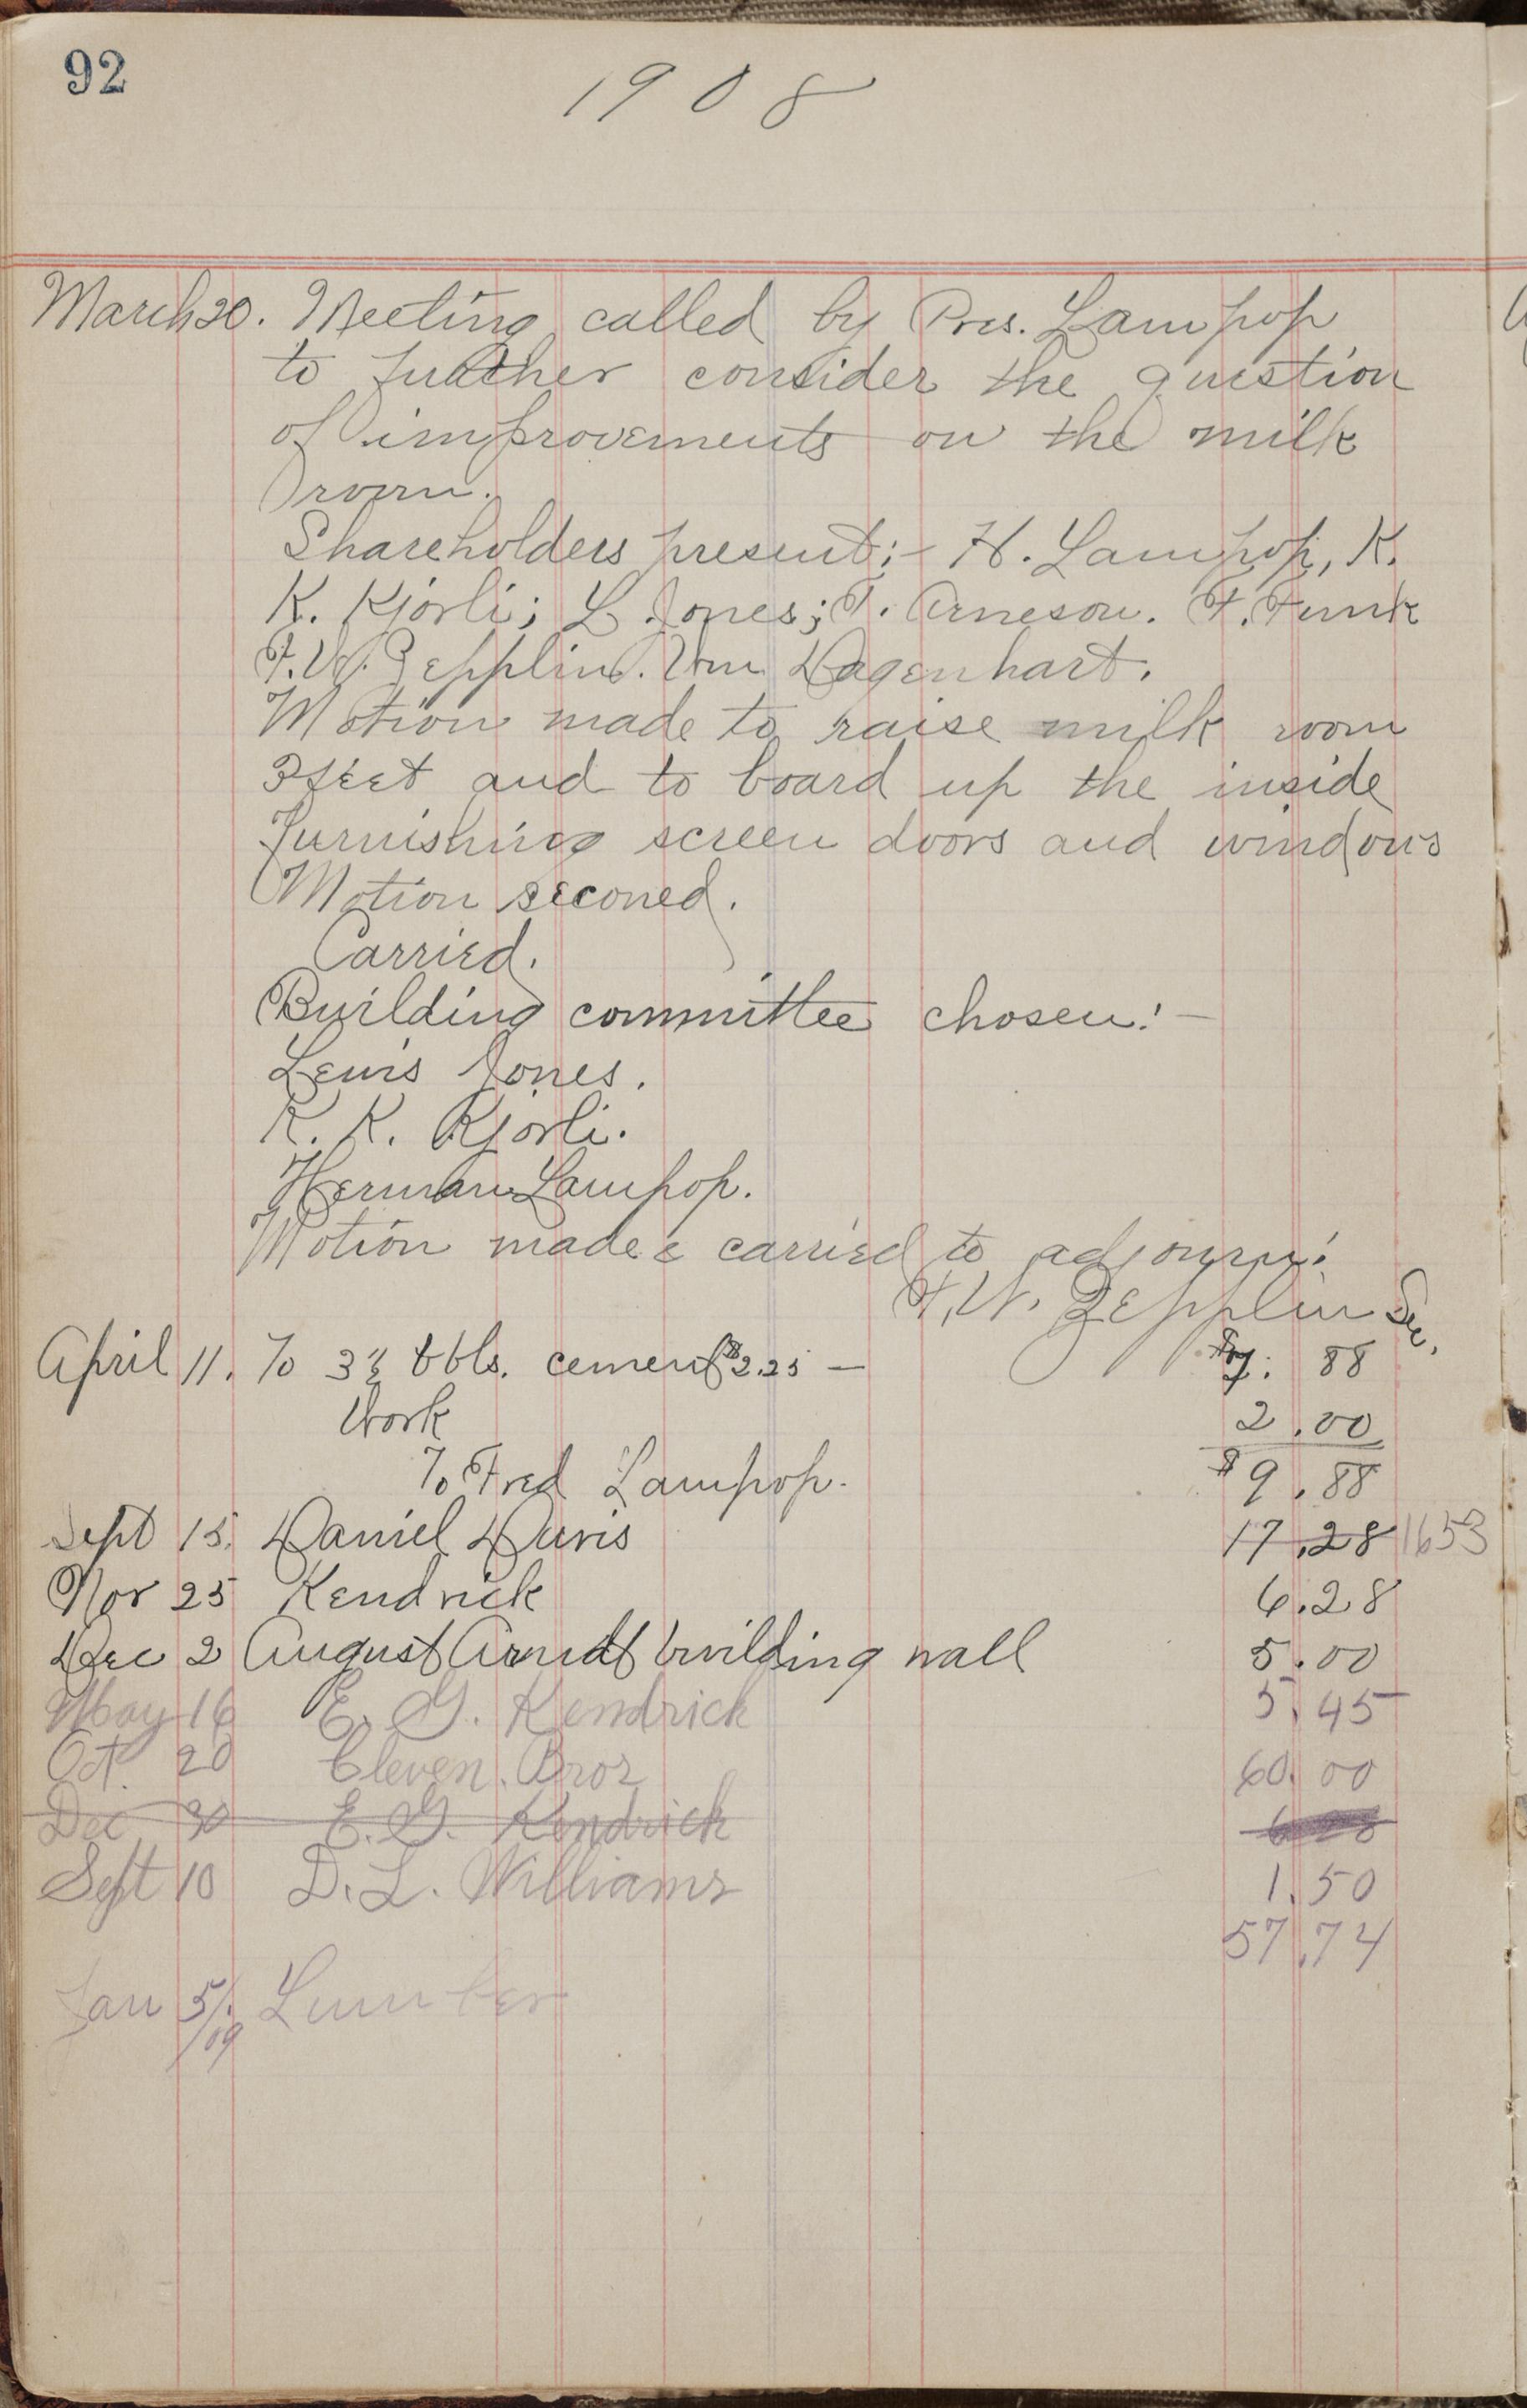 92
1908
March 20. Meeting called by Pres. Lampop
to further consider the question
of improvements on the milk
room.
Shareholders present;- H. Lampop, K.
K. Kjorli; L. Jones; T. Arneson. F. Funk
F. W. Zepplin. Wm Dagenhart.
Motion made to raise milk room
3 feet and to board up the inside
furnishing screen doors and windows
Motion seconed.
Carried.
Building committee chosen:-
Lewis Jones.
K. K. Kjorli.
Herman Lampop.
Motion made & carried to adjourn.
F. W. Zepplin Sec.
April 11. To 3½ bbls. cement $2.25 — $7.88
Work 2.00
To Fred Lampop. $9.88
Sept 15. Daniel Davis 17.28 1653
Nov 25 Kendrick 6.28
Dec 2 August Arndt building wall 5.00
May 16 E. G. Kendrick 5.45
Oct. 20 Cleven Bros 60.00
Dec 30 E. G. Kendrick
Sept 10 D. L. Williams 1.50
57.74
Jan 5/09 Lumber